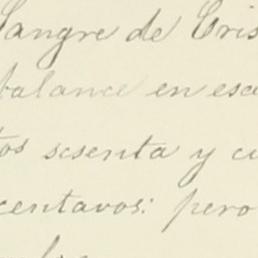 Sangre de Cris
balance en esc
tos sesenta y cu
centavos: pero